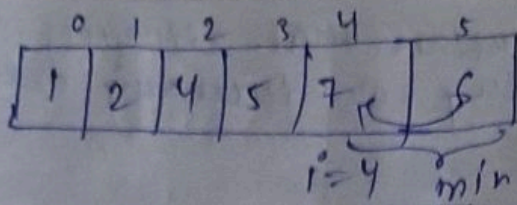 0 1 2 3 4 5
1 2 4 5 7 6
i=4 min